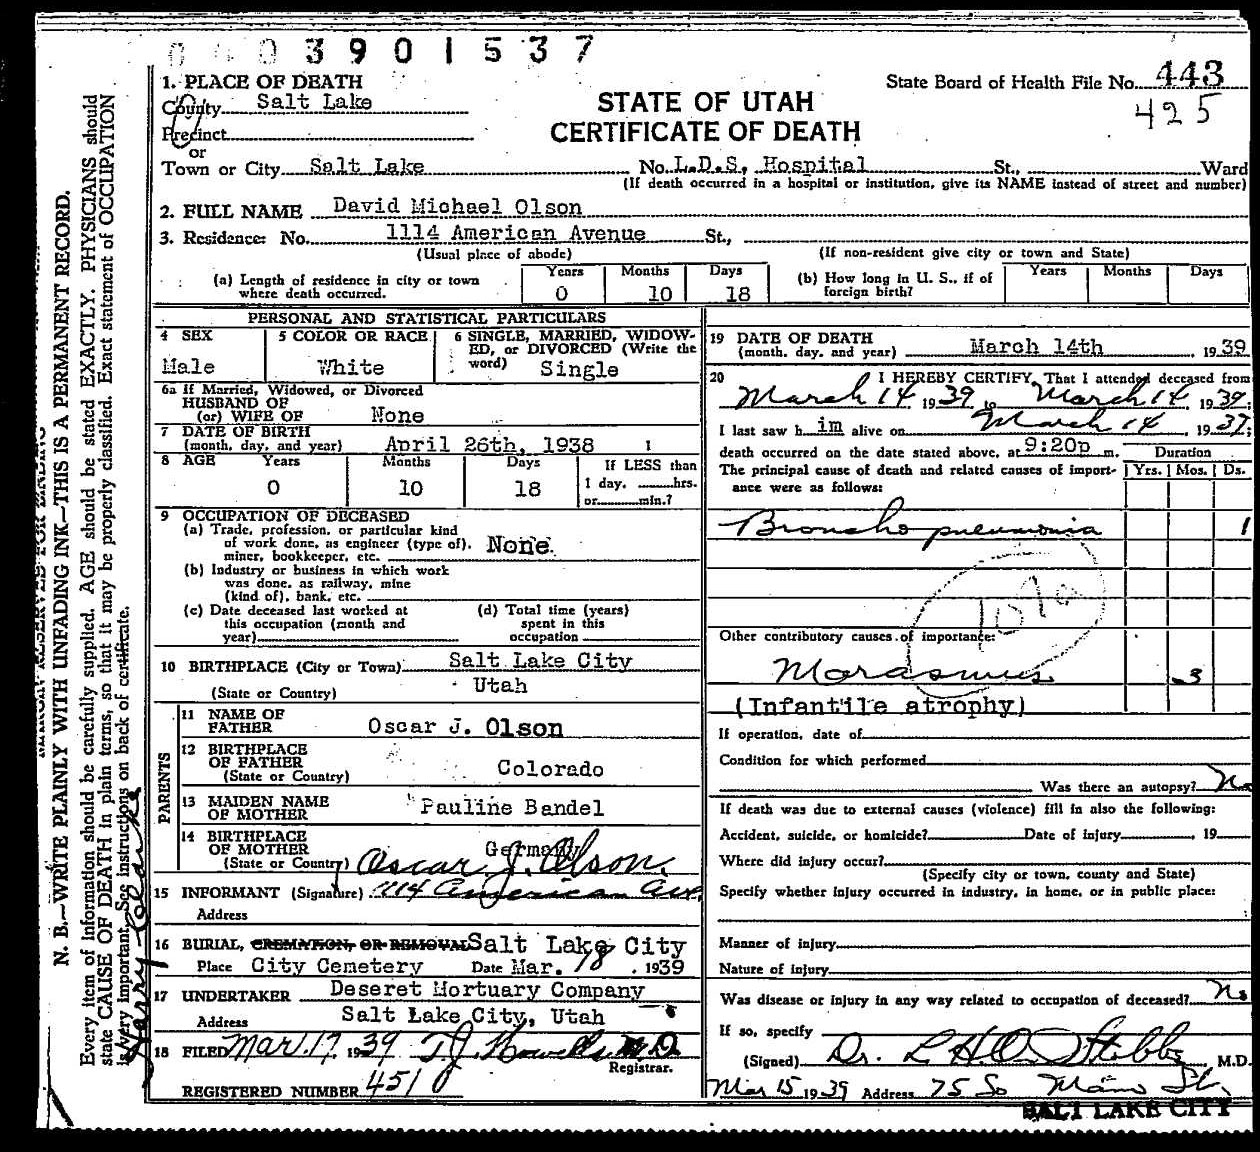 3901537
1. PLACE OF DEATH
State Board of Health File No. 443
425
County Salt Lake
STATE OF UTAH
CERTIFICATE OF DEATH
Precinct
or
Town or City Salt Lake No. L.D.S. Hospital St., Ward
(If death occurred in a hospital or institution, give its NAME instead of street and number)
2. FULL NAME David Michael Olson
3. Residence: No. 1114 American Avenue St.,
(Usual place of abode) (If non-resident give city or town and State)
(a) Length of residence in city or town where death occurred. Years 0 Months 10 Days 18
(b) How long in U. S., if of foreign birth? Years Months Days
PERSONAL AND STATISTICAL PARTICULARS
4 SEX Male
5 COLOR OR RACE White
6 SINGLE, MARRIED, WIDOWED, or DIVORCED (Write the word) Single
6a If Married, Widowed, or Divorced
HUSBAND OF
(or) WIFE OF None
7 DATE OF BIRTH
(month, day, and year) April 26th, 1938
8 AGE Years 0 Months 10 Days 18 If LESS than 1 day, hrs. or min.?
9 OCCUPATION OF DECEASED
(a) Trade, profession, or particular kind
of work done, as engineer (type of), None
miner, bookkeeper, etc.
(b) Industry or business in which work
was done, as railway, mine
(kind of), bank, etc.
(c) Date deceased last worked at this occupation (month and year)
(d) Total time (years) spent in this occupation
10 BIRTHPLACE (City or Town) Salt Lake City
(State or Country) Utah
PARENTS
11 NAME OF FATHER Oscar J. Olson
12 BIRTHPLACE OF FATHER
(State or Country) Colorado
13 MAIDEN NAME OF MOTHER Pauline Bandel
14 BIRTHPLACE OF MOTHER
(State or Country) Germany
15 INFORMANT (Signature) Oscar J. Olson
Address 1114 American Ave.
16 BURIAL, CREMATION, OR REMOVAL Salt Lake City
Place City Cemetery Date Mar. 18, 1939
17 UNDERTAKER Deseret Mortuary Company
Address Salt Lake City, Utah
18 FILED Mar. 17, 1939 T. J. Howells M.D.
Registrar.
REGISTERED NUMBER 451
19 DATE OF DEATH
(month, day, and year) March 14th 1939
20 I HEREBY CERTIFY, That I attended deceased from
March 14 1939 to March 14 1939;
I last saw him alive on March 14, 1939;
death occurred on the date stated above, at 9:20p m.
Duration
Yrs. Mos. Ds.
The principal cause of death and related causes of importance were as follows:
Broncho pneumonia 1
107a
Other contributory causes of importance:
Marasmus 3
(Infantile atrophy)
If operation, date of
Condition for which performed
Was there an autopsy? No
If death was due to external causes (violence) fill in also the following:
Accident, suicide, or homicide? Date of injury, 19
Where did injury occur?
(Specify city or town, county and State)
Specify whether injury occurred in industry, in home, or in public place:
Manner of injury
Nature of injury
Was disease or injury in any way related to occupation of deceased? No
If so, specify
(Signed) Dr. L. H. O. Stobbe M.D.
Mar 15 1939 Address 75 So Main St.
SALT LAKE CITY
N. B.—WRITE PLAINLY WITH UNFADING INK—THIS IS A PERMANENT RECORD.
Every item of information should be carefully supplied. AGE should be stated EXACTLY. PHYSICIANS should
state CAUSE OF DEATH in plain terms, so that it may be properly classified. Exact statement of OCCUPATION
is very important. See instructions on back of certificate.